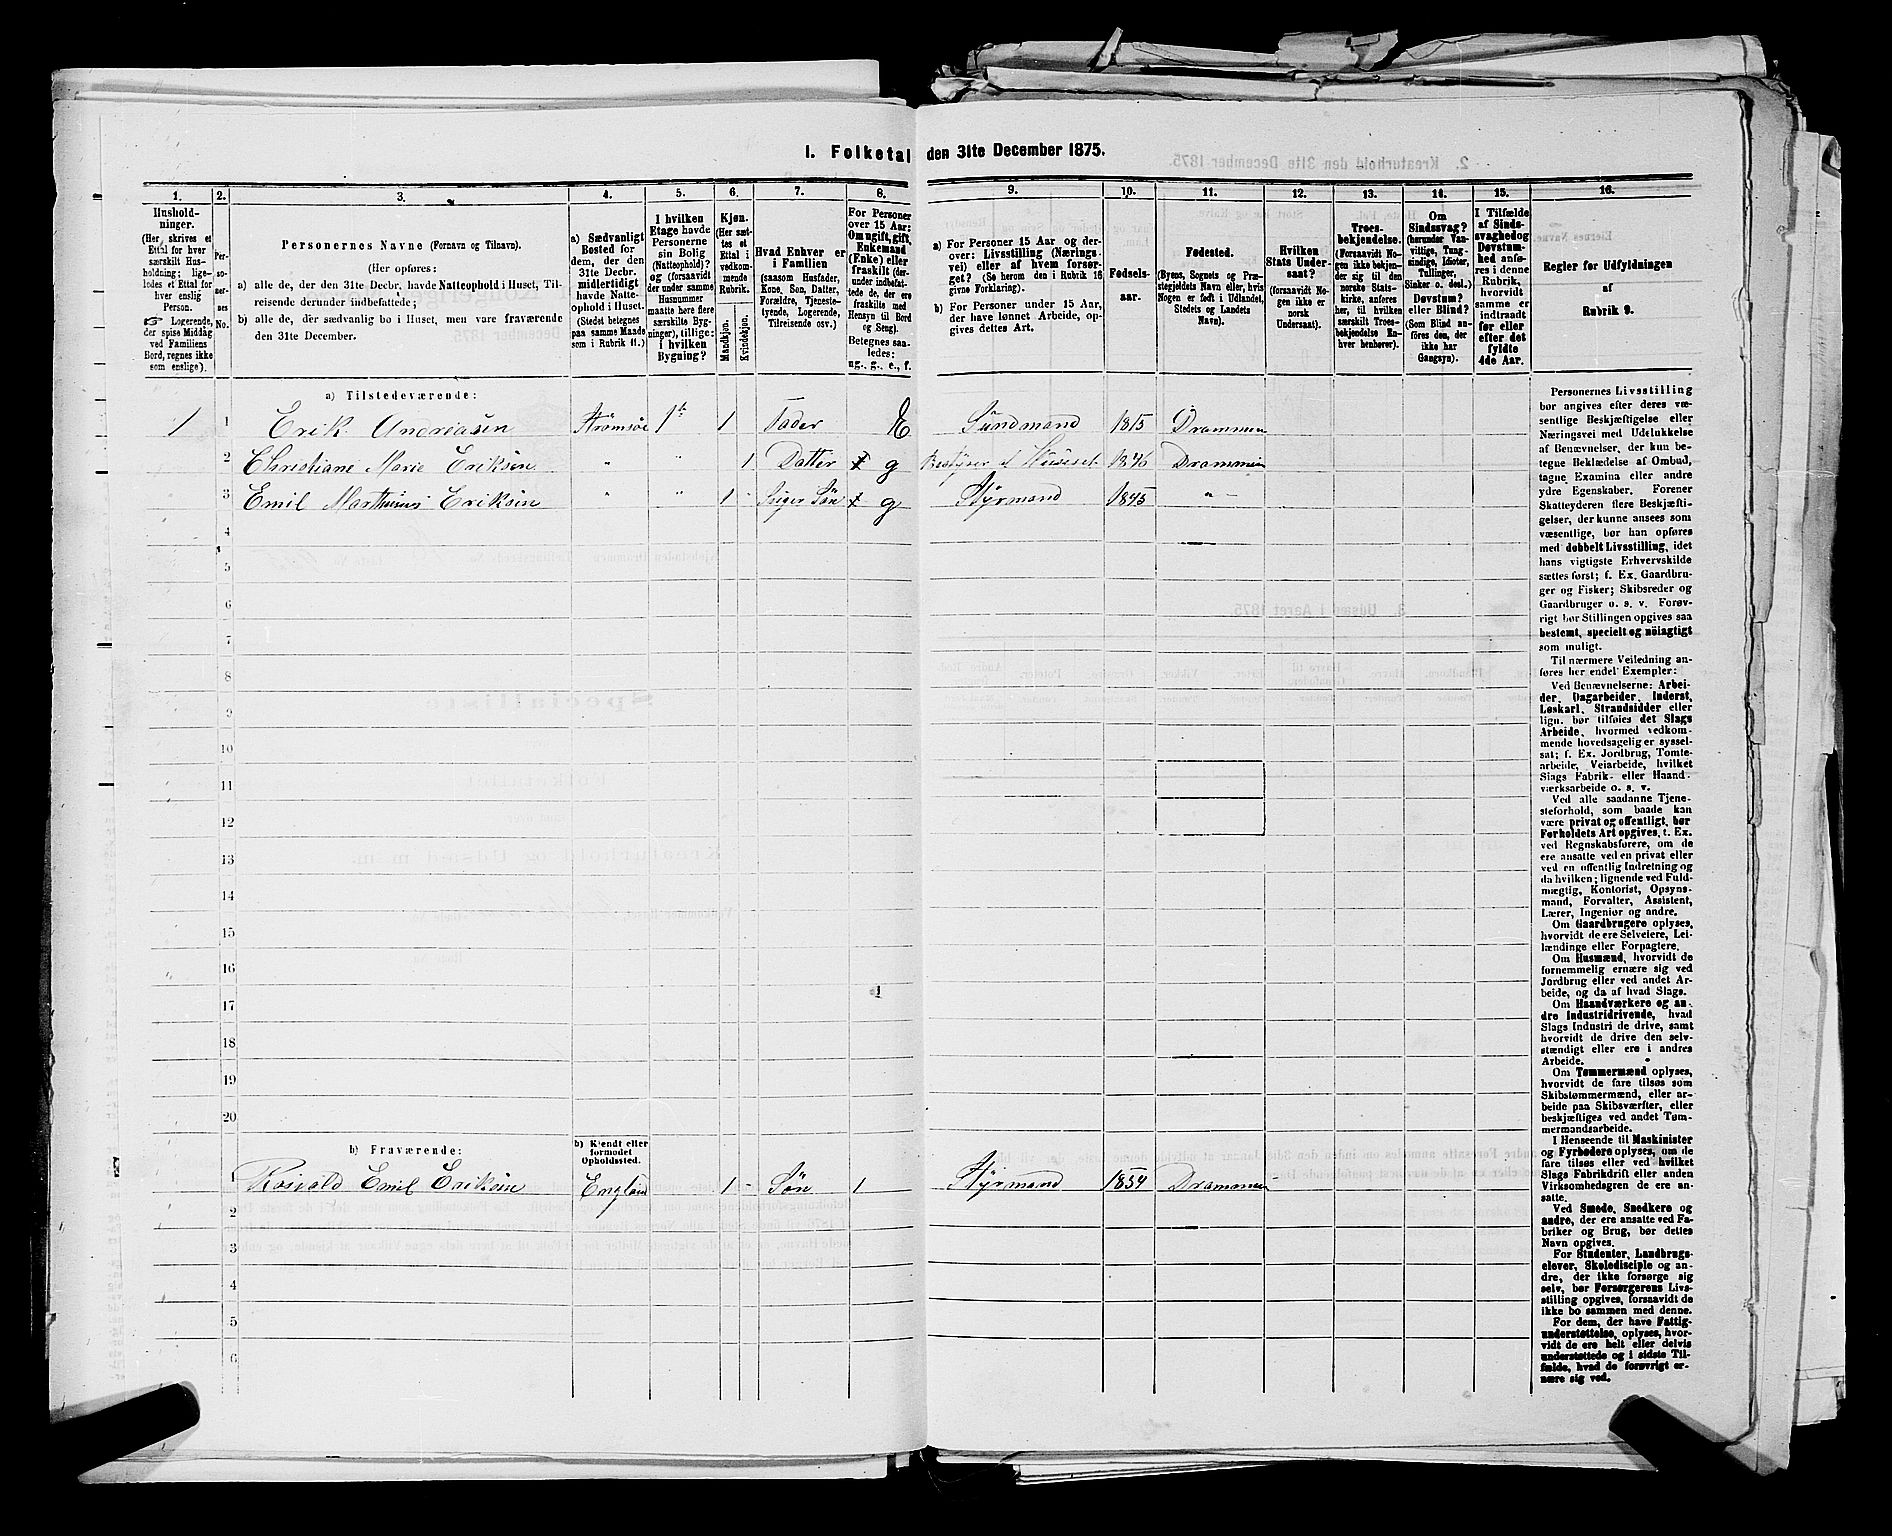 I. Folketal den 31te December 1875.
1. 2. 3. 4. 5. 6. 7. 8. 9. 10. 11. 12. 13. 14. 15. 16.
Husholdninger. (Her skrives et Ettal for hver særskilt Husholdning; ligeledes et Ettal for hver enslig Person. Logerende, der spise Middag ved Familiens Bord, regnes ikke som enslige).
Personernes No.
Personernes Navne (Fornavn og Tilnavn).
(Her opføres:
a) alle de, der den 31te Decbr. havde Natteophold i Huset, Tilreisende derunder indbefattede;
b) alle de, der sædvanlig bo i Huset, men vare fraværende den 31te December.
a) Sædvanligt Bosted for dem, der den 31te Decbr. midlertidigt havde Natteophold i Huset. (Stedet betegnes paa samme Maade som i Rubrik 11.)
I hvilken Etage havde Personerne sin Bolig (Natteophold)? og (forsaavidt der under samme Husnummer maatte høre flere særskilte Bygninger), tillige: i hvilken Bygning?
Kjøn. (Her sættes et Ettal i vedkommende Rubrik.
Mandkjøn. Kvindekjøn.
Hvad Enhver er i Familien (saasom Husfader, Kone, Søn, Datter, Forældre, Tjenestetyende, Logerende, Tilreisende osv.)
For Personer over 15 Aar: Om ugift, gift, Enkemand (Enke) eller fraskilt (derunder indbefattede de, der ere fraskilte med Hensyn til Bord og Seng). Betegnes saaledes: ug., g., e., f.
a) For Personer 15 Aar og derover: Livsstilling (Næringsvei) eller af hvem forsørget? (Se herom den i Rubrik 16 givne Forklaring).
b) For Personer under 15 Aar, der have lønnet Arbeide, opgives dettes Art.
Fødselsaar.
Fødested. (Byens, Sognets og Præstegjeldets Navn eller, hvis Nogen er født i Udlandet, Stedets og Landets Navn).
Hvilken Stats Undersaat? (forsaavidt Nogen ikke er norsk Undersaat).
Troesbekjendelse. (Forsaavidt Nogen ikke bekjender sig til den norske Statskirke, anføres her, til hvilken særskilt Troesbekjendelse Enhver henhører).
Om Sindssvag? (herunder Vanvittige, Tungsindige, Idioter, Tullinger, Sinker o. desl.) Døvstum? eller Blind? (Som Blind anføres den, der ikke har Gangsyn).
I Tilfælde af Sindssvaghed og Døvstumhed anføres i denne Rubrik, hvorvidt samme er indtraadt før eller efter det fyldte 4de Aar.
Regler for Udfyldningen af Rubrik 9.
a) Tilstedeværende:
1 1 Erik Andreasen Strømsøe 1 1 Fader E Sundmand 1815 Drammen
2 Christiane Marie Eriksen " " 1 Datter g Bestyrer af Huuset 1846 Drammen
3 Emil Marthinus Eriksen " " 1 Søn g Styrmand 1845 "
4
5
6
7
8
9
10
11
12
13
14
15
16
17
18
19
20
b) Fraværende:
b) Kjendt eller formodet Opholdssted.
1 Emil Eriksen England 1 Søn 1 Styrmand 1854 Drammen
2
3
4
5
6
Personernes Livsstilling
bør angives efter deres væsentlige
Beskjæftigelse eller
Næringsvei med Udelukkelse
af Benævnelser, der kun betegne
Beklædelse af Ombud,
tagne Examina eller andre
ydre Egenskaber. Forener
Skatteyderen flere Beskjæftigelser,
der kunne ansees som
væsentlige, bør han opføres
med dobbelt Livsstilling, idet
hans vigtigste Erhvervskilde
sættes først; f. Ex. Gaardbruger
og Fisker; Skibsreder og
Gaardbruger o. s. v. Forøvrigt
bør Stillingen opgives saa
bestemt, specielt og nöiagtigt
som muligt.
Til nærmere Veiledning anføres
her endel Exempler:
Ved Benævnelserne: Arbeider,
Dagarbeider, Inderst,
Løskarl, Strandsidder eller
lign. bør tilføies det Slags
Arbeide, hvormed vedkommende
hovedsagelig er sysselsat;
f. Ex. Jordbrug, Tomtearbeide,
Veiarbeide, hvilket
Slags Fabrik- eller Haandværksarbeide
o. s. v.
Ved alle saadanne Tjenesteforhold,
som baade kan
være privat og offentligt, bør
Forholdets Art opgives, t. Ex.
ved Regnskabsførere, om de
ere ansatte ved en privat eller
ved en offentlig Indretning og
da hvilken; lignende ved Fuldmægtig,
Kontorist, Opsynsmand,
Forvalter, Assistent,
Lærer, Ingeniør og andre.
Om Gaardbrugere oplyses,
hvorvidt de ere Selveiere, Leilændinge
eller Forpagtere.
Om Husmænd, hvorvidt de
fornemmelig ernære sig ved
Jordbrug eller ved andet Arbeide,
og da af hvad Slags.
Om Haandværkere og andre
Industridrivende, hvad
Slags Industri de drive, samt
hvorvidt de drive den selvstændigt
eller ere i andres
Arbeide.
Om Tømmermænd oplyses,
hvorvidt de fare tilsøs som
Skibstømmermænd, eller arbeide
paa Skibsværfter, eller
beskjæftiges ved andet Tømmermandsarbeide.
I Henseende til Maskinister
og Fyrbødere oplyses, om de
fare tilsøs eller ved hvilket
Slags Fabrikdrift eller anden
Virksomhedsgren de ere ansatte.
Ved Smede, Snedkere og
andre, der ere ansatte ved Fabriker
og Brug, bør dettes
Navn opgives.
For Studenter, Landbrugselever,
Skoledisciple og andre,
der ikke forsørge sig
selv, bør Forsørgerens Livsstilling
opgives, forsaavidt de
ikke bo sammen med denne.
For dem, der have Fattigunderstøttelse,
oplyses, hvorvidt
de ere helt eller delvis
understøttede og i sidste Tilfælde,
hvad de forøvrigt ernære
sig ved.